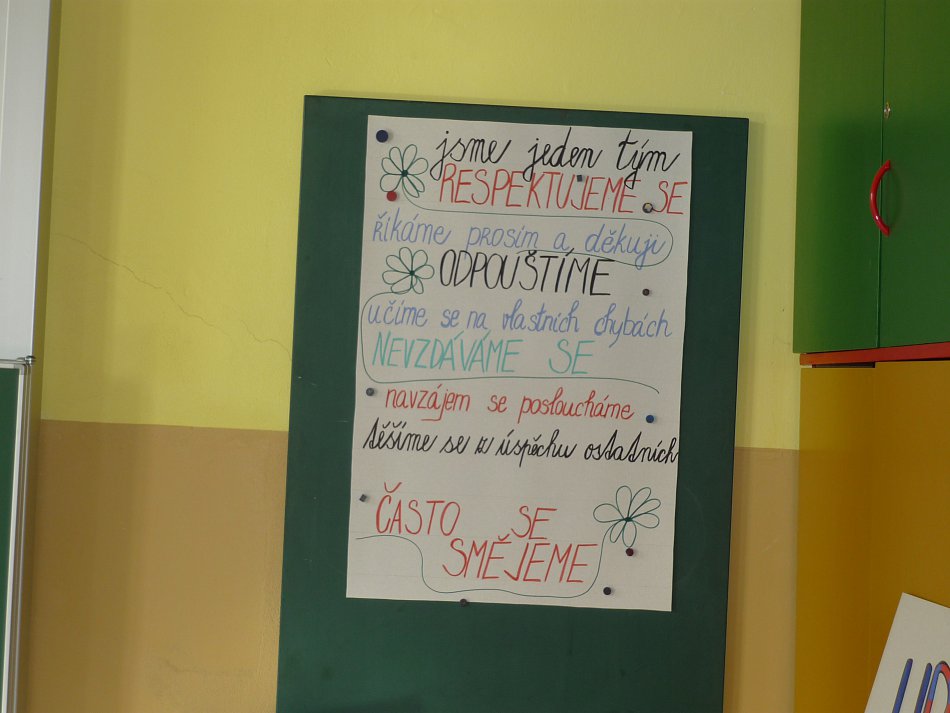 jsme jeden tým
RESPEKTUJEME SE
říkáme prosím a děkuji
ODPOUŠTÍME
učíme se na vlastních chybách
NEVZDÁVÁME SE
navzájem se posloucháme
těšíme se z úspěchu ostatních
ČASTO SE
SMĚJEME